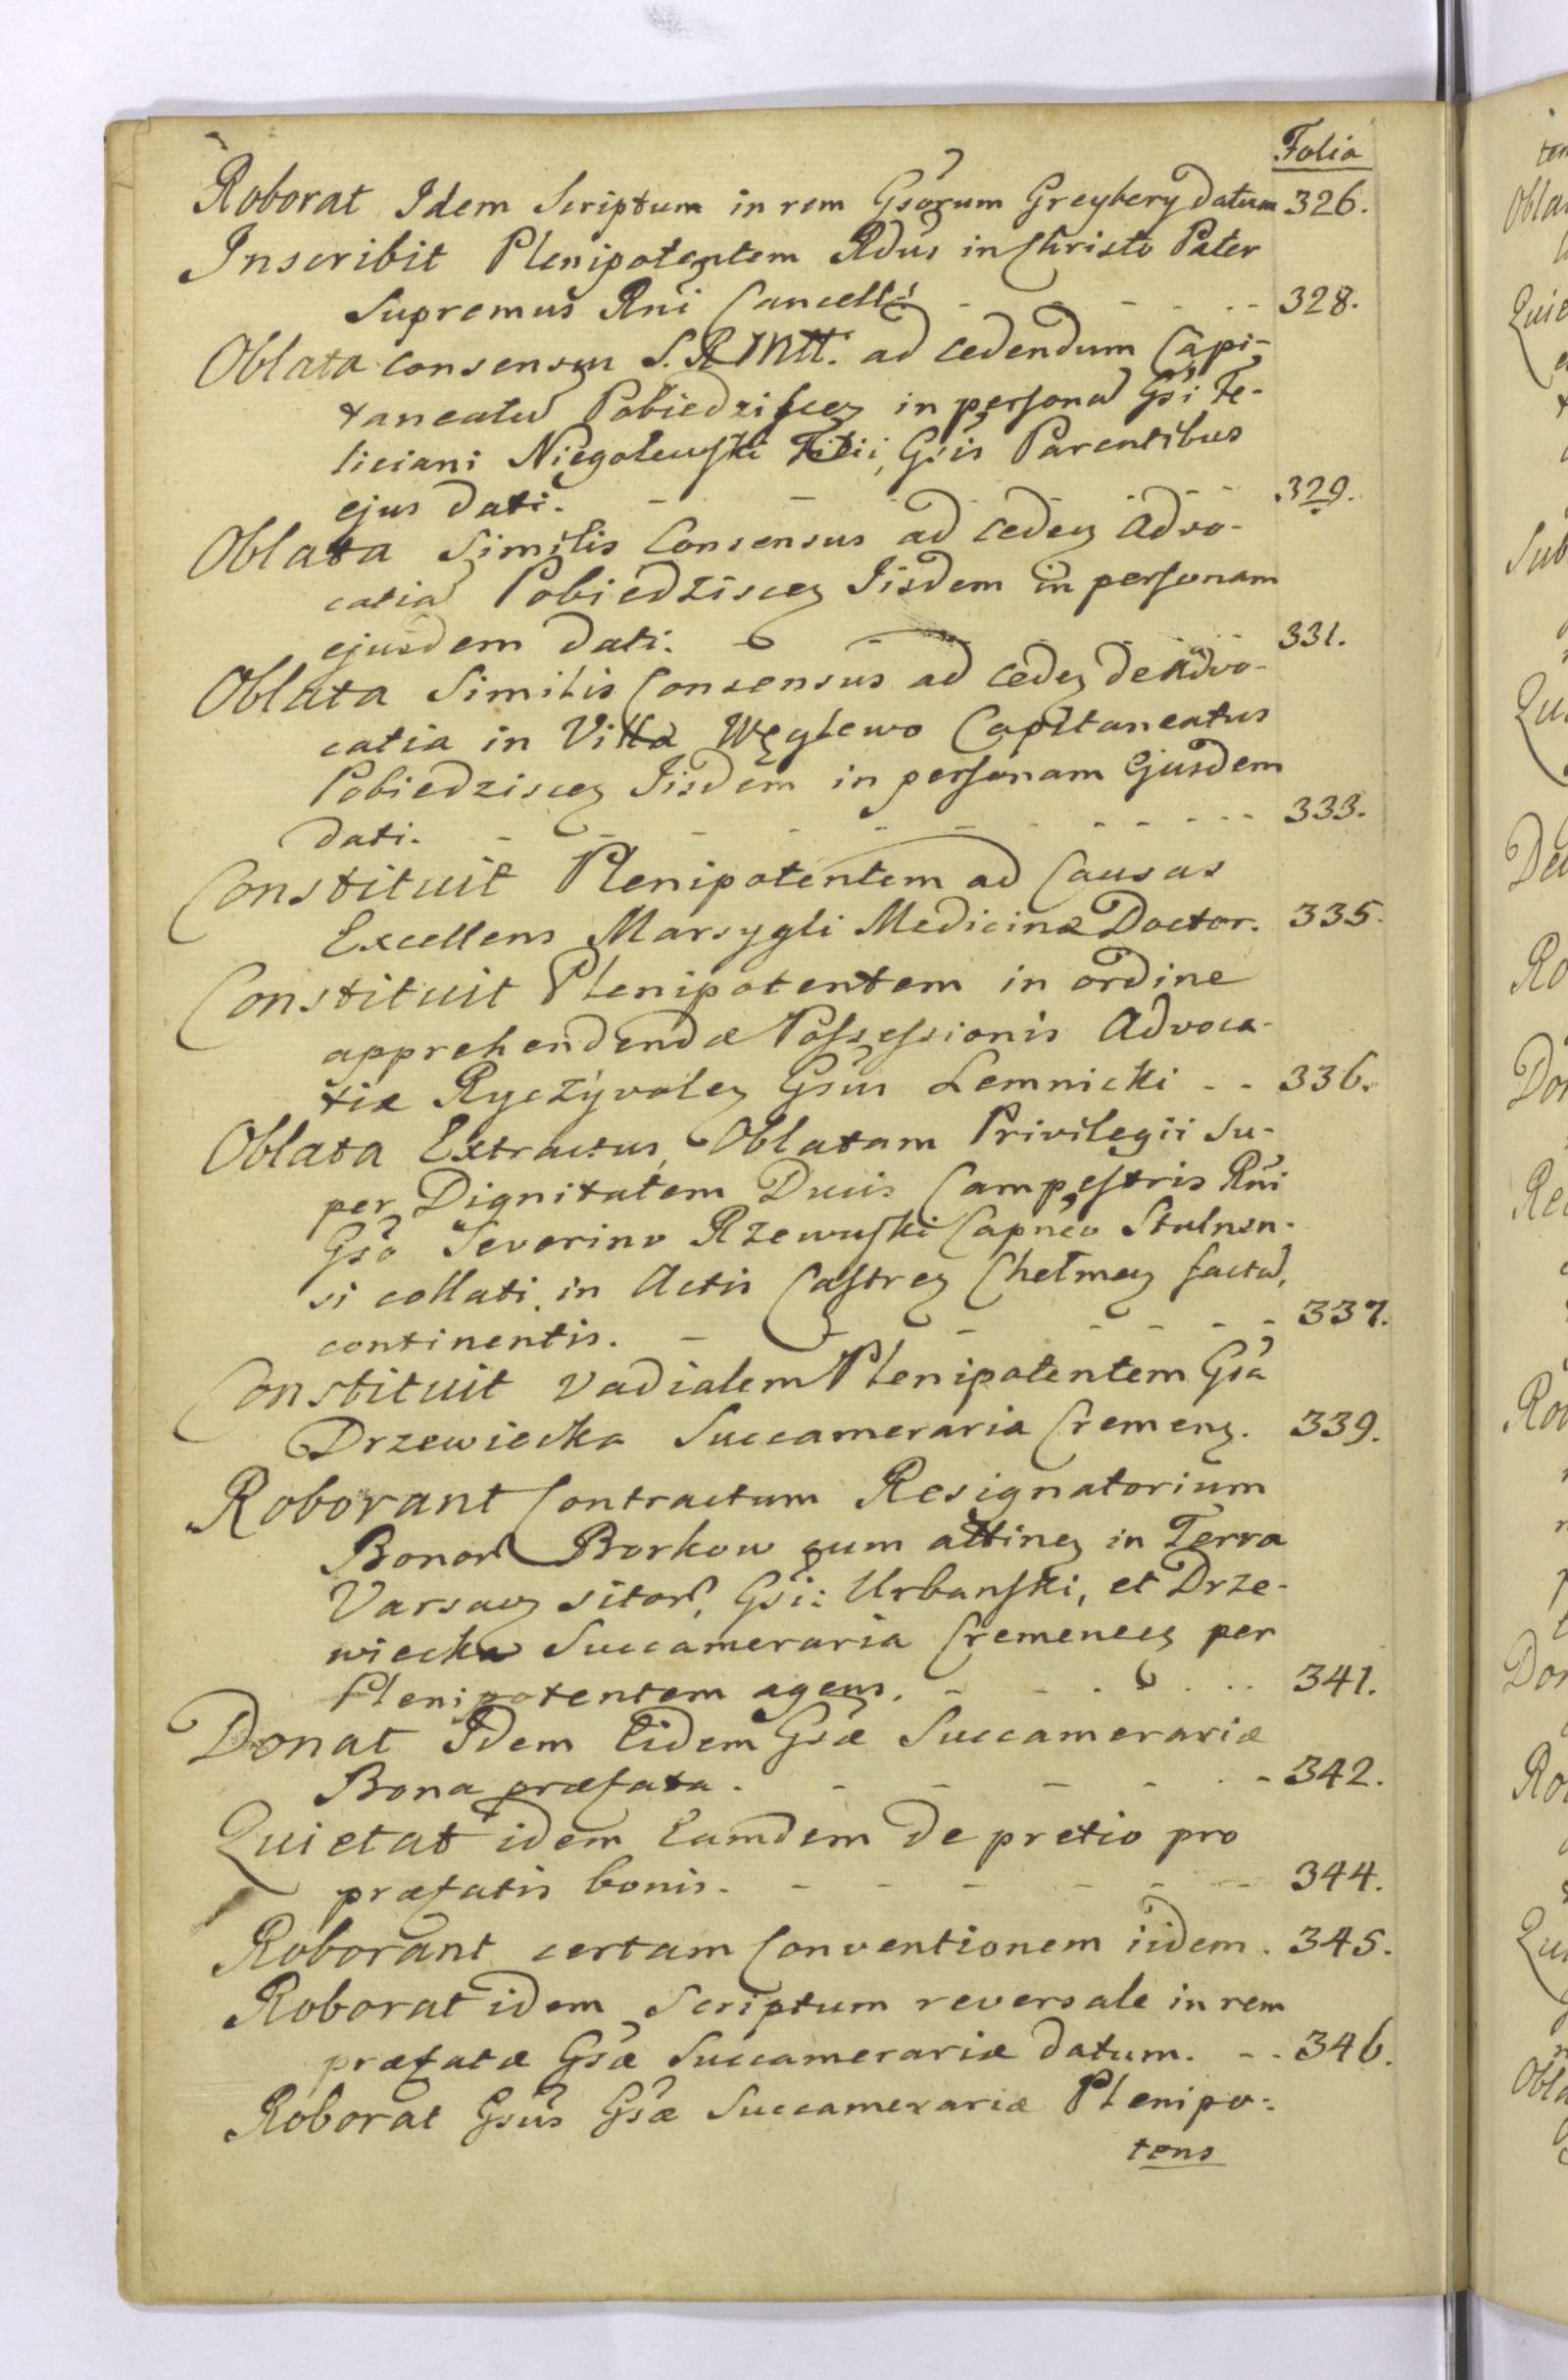 Folia
Roborat Idem Scriptum in rem Gsorum Greybery datum 326.
Inscribit Plenipotentem Rdus in Christo Pater
Supremus Rni Cancell: - - - - - 328.
Oblata consensus S. R. Mtt. ad cedendum Capi-
taneatu Pobiedziscen in persona Gsi Fe-
liciani Niegolewski Filii, Gsis Parentibus
ejus dati. - - - - - 329.
Oblata Similis Consensus ad ceden Advo-
catia Pobiedziscen Iisdem in personam
ejusdem dati. - - - - - 331.
Oblata Similis Consensus ad ceden de Advo-
catia in Villa Węglewo Capitaneatus
Pobiedziscen Iisdem in personam Ejusdem
dati. - - - - - - - - - - 333.
Constituit Plenipotentem ad Causas
Excellens Marsygli Medicinæ Doctor. 335.
Constituit Plenipotentem in ordine
apprehendendæ Possessionis Advoca-
tiæ Ryczyvolen Gsus Lemnicki - - 336.
Oblata Extractus, Oblatam Privilegii Su-
per Dignitatem Ducis Campestris Rni
Gso Severino Rzewuski Capneo Stulnen-
si collati, in Actis Castren Chełmen facta,
continentis. - - - - - - 337.
Constituit Vadialem Plenipotentem Gsa
Drzewiecka Succameraria Cremen. 339.
Roborant Contractum Resignatorium
Bonor Borkow cum attinen in Terra
Varsavien sitor, Gsi: Urbanski, et Drze-
wiecka Succameraria Cremenecen per
Plenipotentem agens. - - - - - 341.
Donat Idem Eidem Gsæ Succamerariæ
Bona præfata. - - - - - - 342.
Quietat idem Eamdem de pretio pro
præfatis bonis. - - - - - - 344.
Roborant certam Conventionem iidem. 345.
Roborat idem Scriptum reversale in rem
præfatæ Gsæ Succamerariæ datum. - - 346.
Roborat Gsus Gsæ Succamerariæ Plenipo-
tens